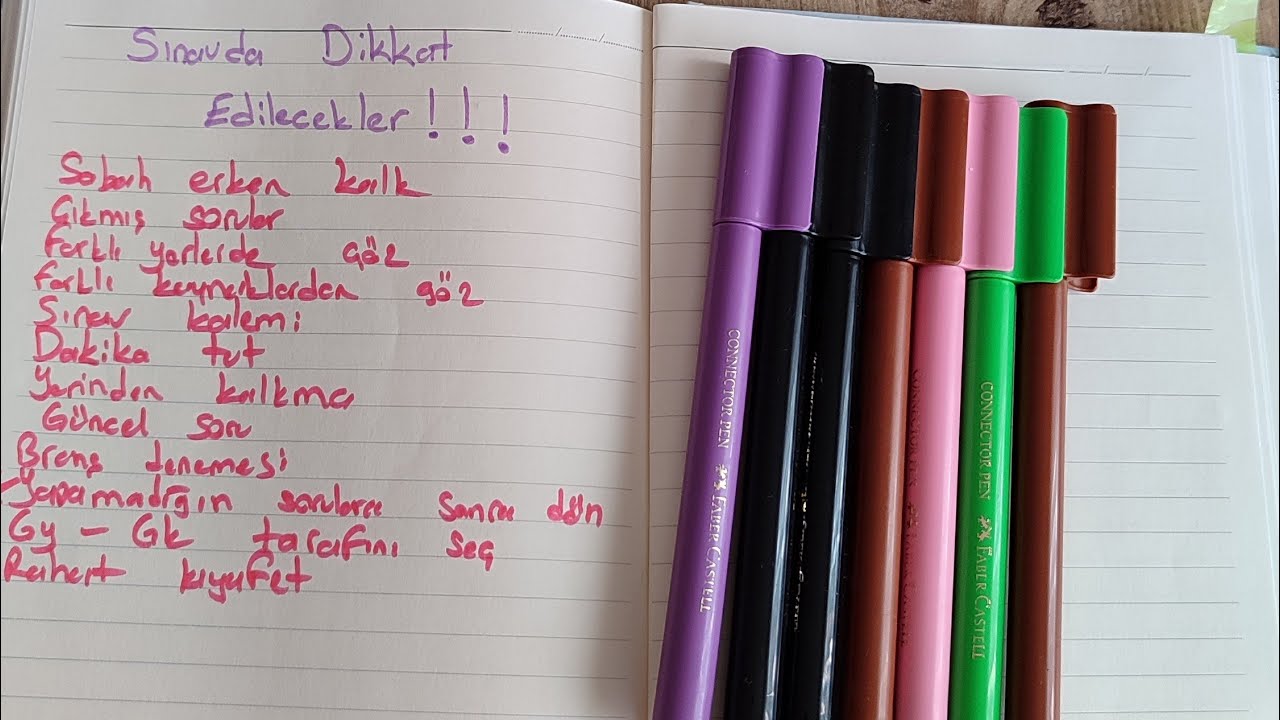 Sınavda Dikkat
Edilecekler!!!
Sabah erken kalk
Çıkmış sorular
farklı yerlerde çöz
farklı kaynaklardan çöz
Sınav kalemi
Dakika tut
Yerinden kalkma
Güncel soru
Branş denemesi
-Yapamadığın sorulara sonra dön
Gy - Gk tarafını seç
Rahat kıyafet
CONNECTOR PEN FABER CASTELL
CONNECTOR PEN FABER CASTELL